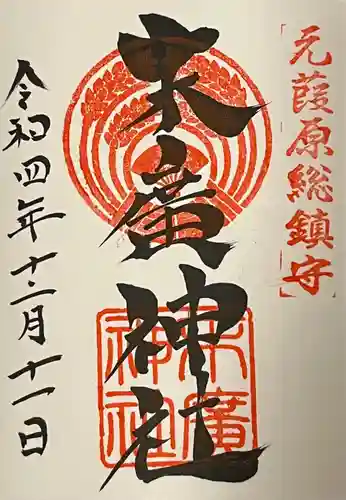 「元葭原総鎮守」
末廣神社
末廣神社
令和四年十二月十一日